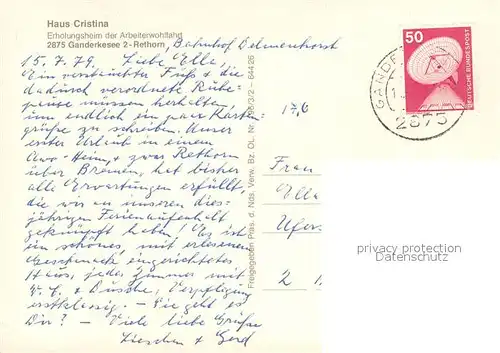 Haus Cristina
Erholungsheim der Arbeiterwohlfahrt
2875 Ganderkesee 2-Rethorn, Bahnhof Delmenhorst
15.7.79. Liebe Ella,
Ein verstauchter Fuß & die
dadurch verordnete Ruhe-
pause müssen herhalten,
um endlich ein paar Karten-
grüße zu schreiben. Unser
erster Urlaub in einem
Awo-Heim, & zwar Rethorn
über Bremen, hat bisher
alle Erwartungen erfüllt,
die wir an unseren dies-
jährigen Ferienaufenthalt
geknüpft haben! Es ist
ein schönes, mit erlesenem
Geschmack eingerichtetes
Haus, jedes Zimmer mit
& Dusche, Verpflegung
erstklassig. - Wie geht es
Dir? - Viele liebe Grüße
Lieschen & Gerd
Freigegeben Präs. d. Nds. Verw. Bz. OL. Nr. 3/2 - 64426
17,6
Frau
Ella
Ufer
2
50
DEUTSCHE BUNDESPOST
GANDE
2875
privacy protection
Datenschutz